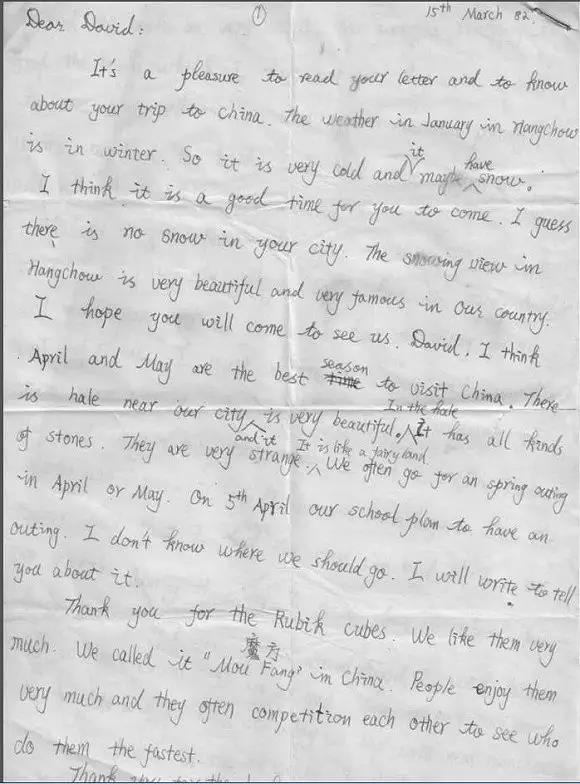 ①
15th March 82
Dear David:
It's a pleasure to read your letter and to know
about your trip to China. The weather in January in Hangchow
is in winter. So it is very cold and it maybe have snow.
I think it is a good time for you to come. I guess
there is no snow in your city. The snowing view in
Hangchow is very beautiful and very famous in our country.
I hope you will come to see us. David, I think
April and May are the best season to visit China. There
is hale near our city and it is very beautiful. In the hale it has all kinds
of stones. They are very strange. It is like a fairy land. We often go for an spring outing
in April or May. On 5th April our school plan to have an
outing. I don't know where we should go. I will write to tell
you about it.
Thank you for the Rubik cubes. We like them very
much. We called it "Mou Fang" 魔方 in China. People enjoy them
very much and they often competition each other to see who
do them the fastest.
Thank you for the